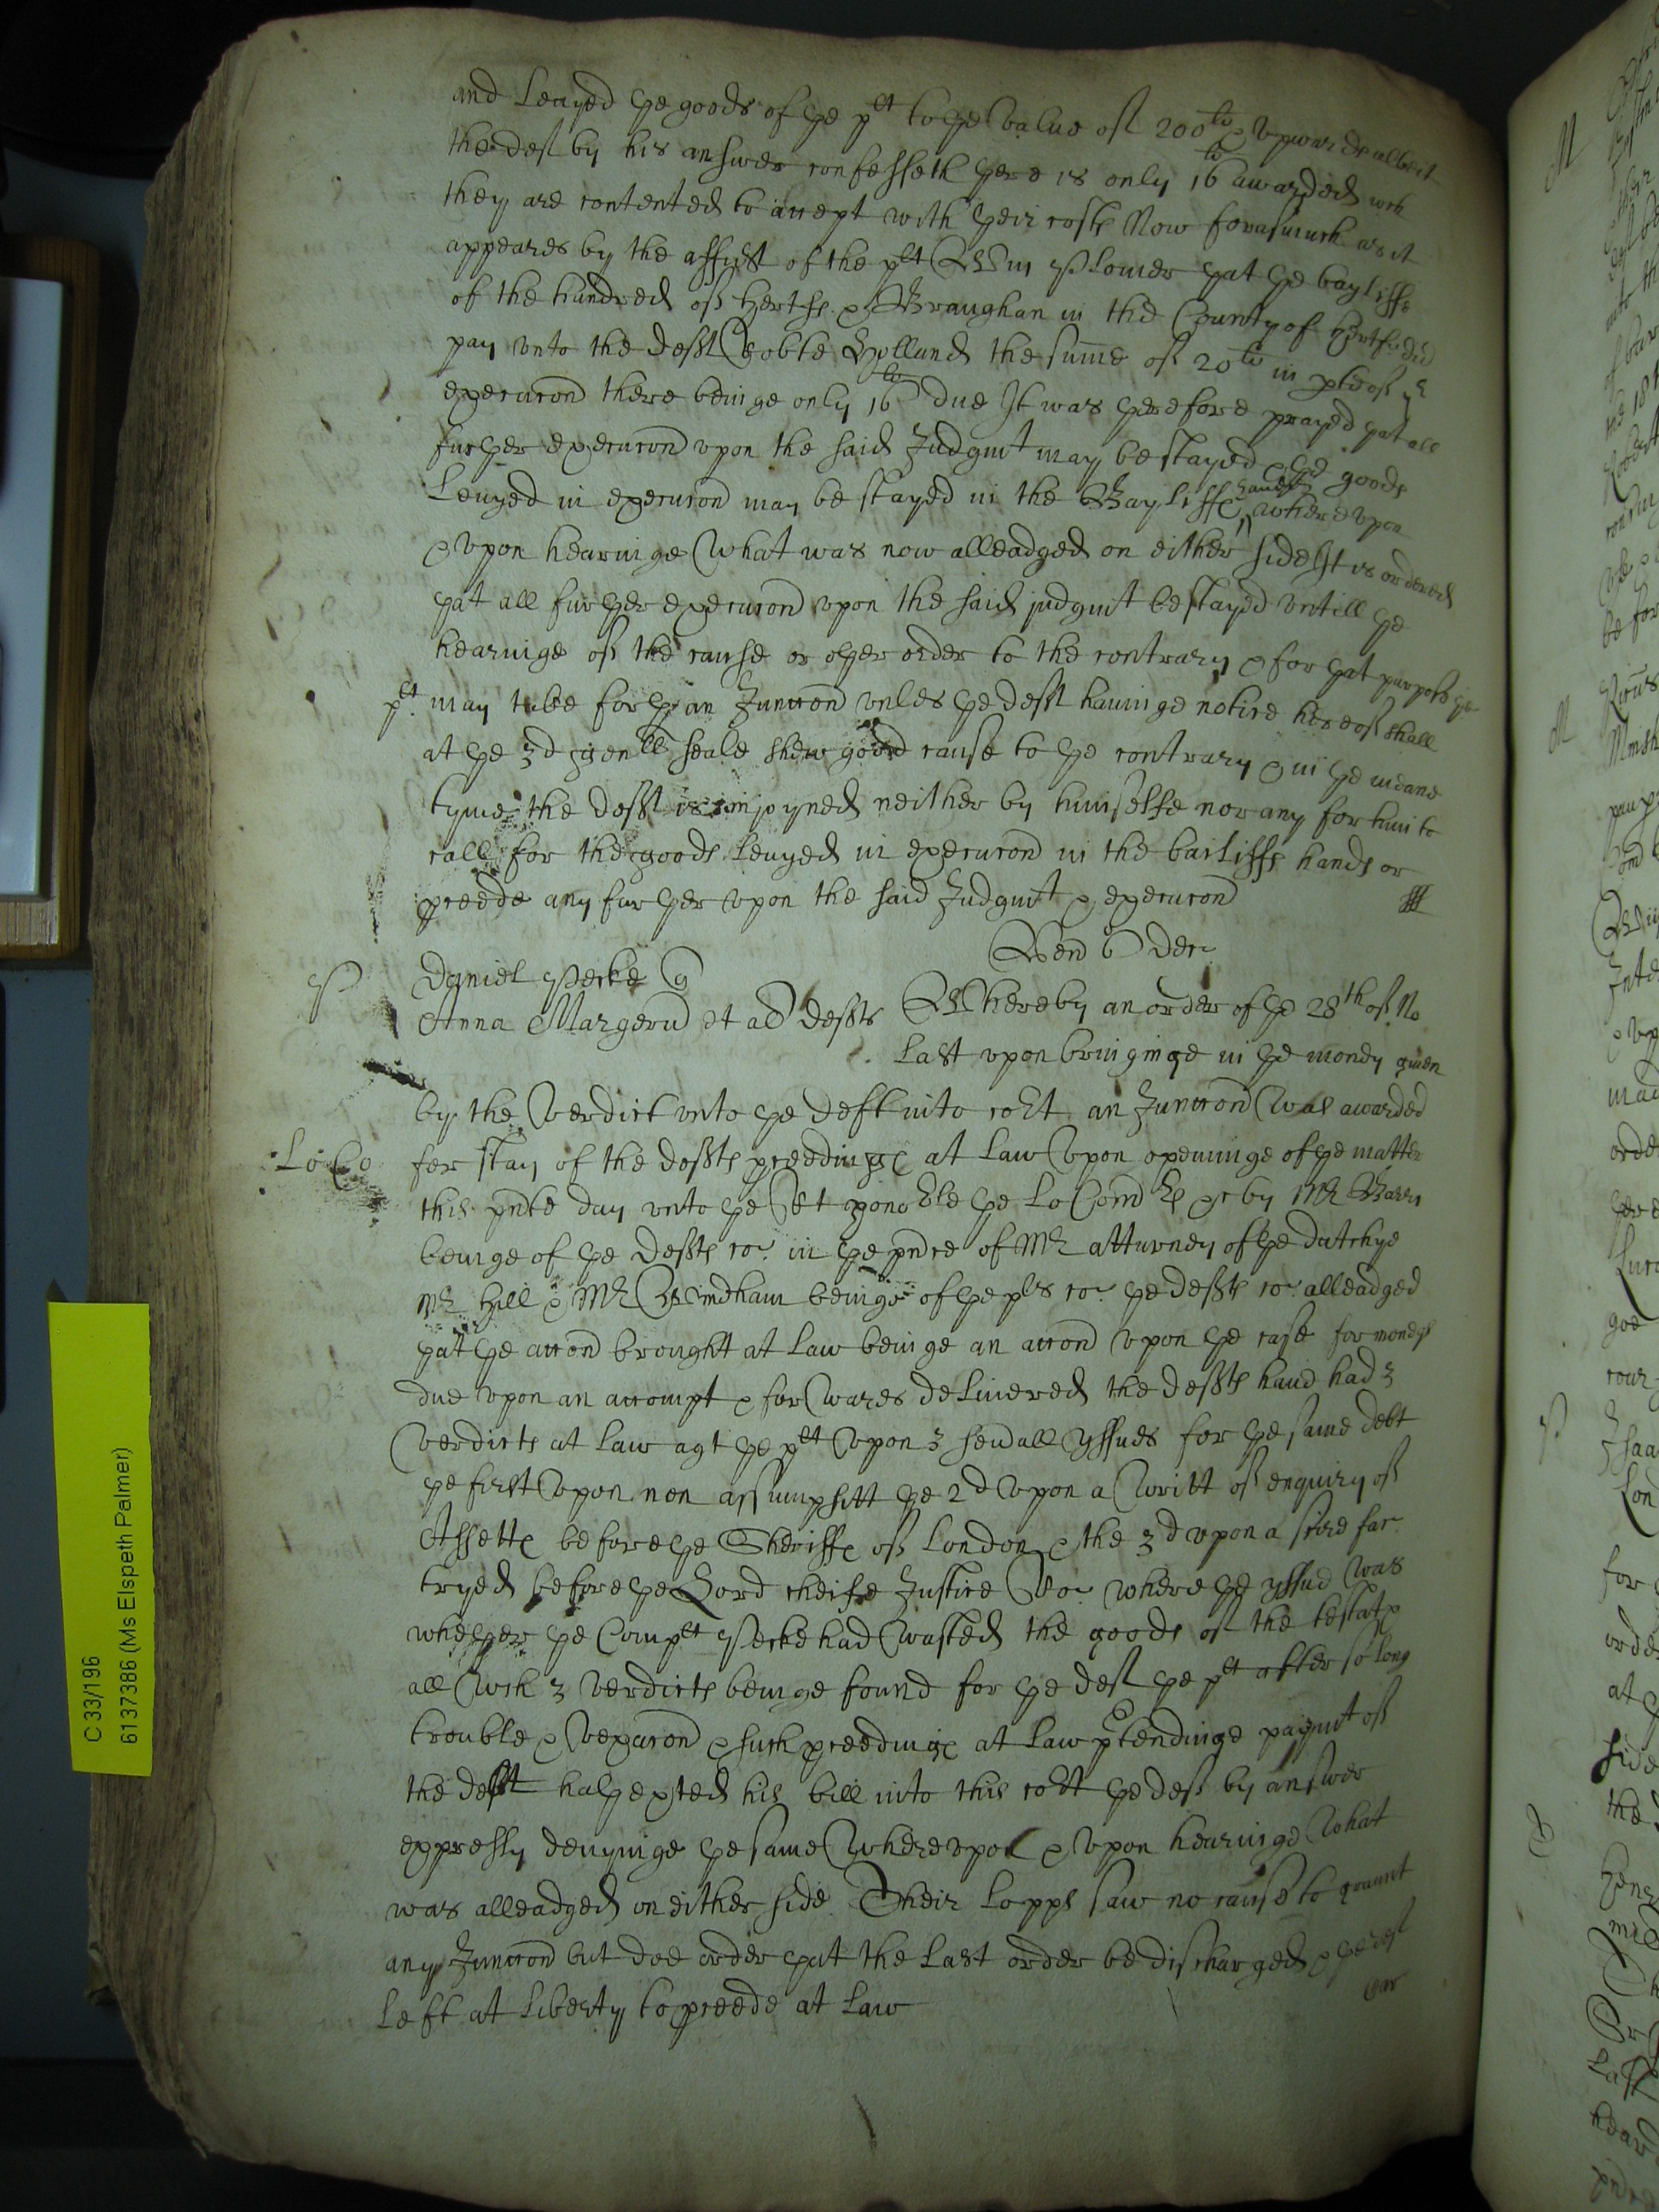 and Levyed ye goods of ye plt to ye value of 200li & upwards albeit
the def by his answer confesseth yere is only 16li awarded wch
they are contented to accept with yeir costs Now forasmuch as it
appeares by the affidt of the plt Wm Plomer yat ye bayliffs
of the hundred of Hertf & Braughan in the County of Hertf did
pay unto the deft Holland the sume of 20li in pte of ye
execucon there beinge only 16li due It was yerefore prayed yat all
furyer execucon upon the said Judgmt may be stayed & ye goods
Levyed in execucon may be stayed in the Bayliffs hands whereupon
& upon hearinge what was now alleadged on either side It is ordered
yat all furyer execucon upon the said judgmt be stayed untill ye
hearinge of the cause or oyer order to the contrary & for yat purpose ye
plt may take forth an Iunccon unles ye deft havinge notice hereof shall
at ye 3d genll seale shew good cause to ye contrary & in ye meane
tyme the deft is injoyned neither by himselfe nor any for him to
call for the goods Levyed in execucon in the bailiffs hands or
pceede any furyer upon the said Judgmt & execucon
P Daniel Pecke q
Anna Margerū et al defts Whereby an order of ye 28th of No
Last upon bringinge in ye money given
by the verdict unto ye deft into cort an Iunccon was awarded
Lo Co for stay of the defts pceedings at Law Upon openinge of ye matter
this pnte day unto ye Rt honoble ye Lo Comrs &c by Mr Barry
beinge of ye defts co: in ye pnce of Mr atturney of ye dutchye
Mr Hill & Mr Windham beinge of ye pls co: ye defts co: alleadged
yat ye accon brought at Law beinge an accon upon ye case for moneys
due upon an accompt & for wares delivered the defts haud had 3
verdicts at Law agt ye plt upon 3 sevall yssues for ye same debt
ye first upon non assumpsitt ye 2d upon a writt of enquiry of
Assetts before ye Sheriffs of London & the 3d upon a scire fac
tryed before ye Lord cheife Justice where ye yssue was
wheyer ye Complt Pecke had wasted the goods of the testatr
all wch 3 verdicts beinge found for ye def ye plt after so long
trouble & vexacon & such pceedings at Law ptendinge paymt of
the debt haye exted his bill into this cort ye def by answer
expressly denyinge ye same whereupon & upon hearinge what
was alleadged on either side Their Lopps saw no cause to graunt
any Iunccon but doe order yat the Last order be discharged & ye def
Left at Liberty to pceede at Law
C 33/196
6137386 (Ms Elspeth Palmer)